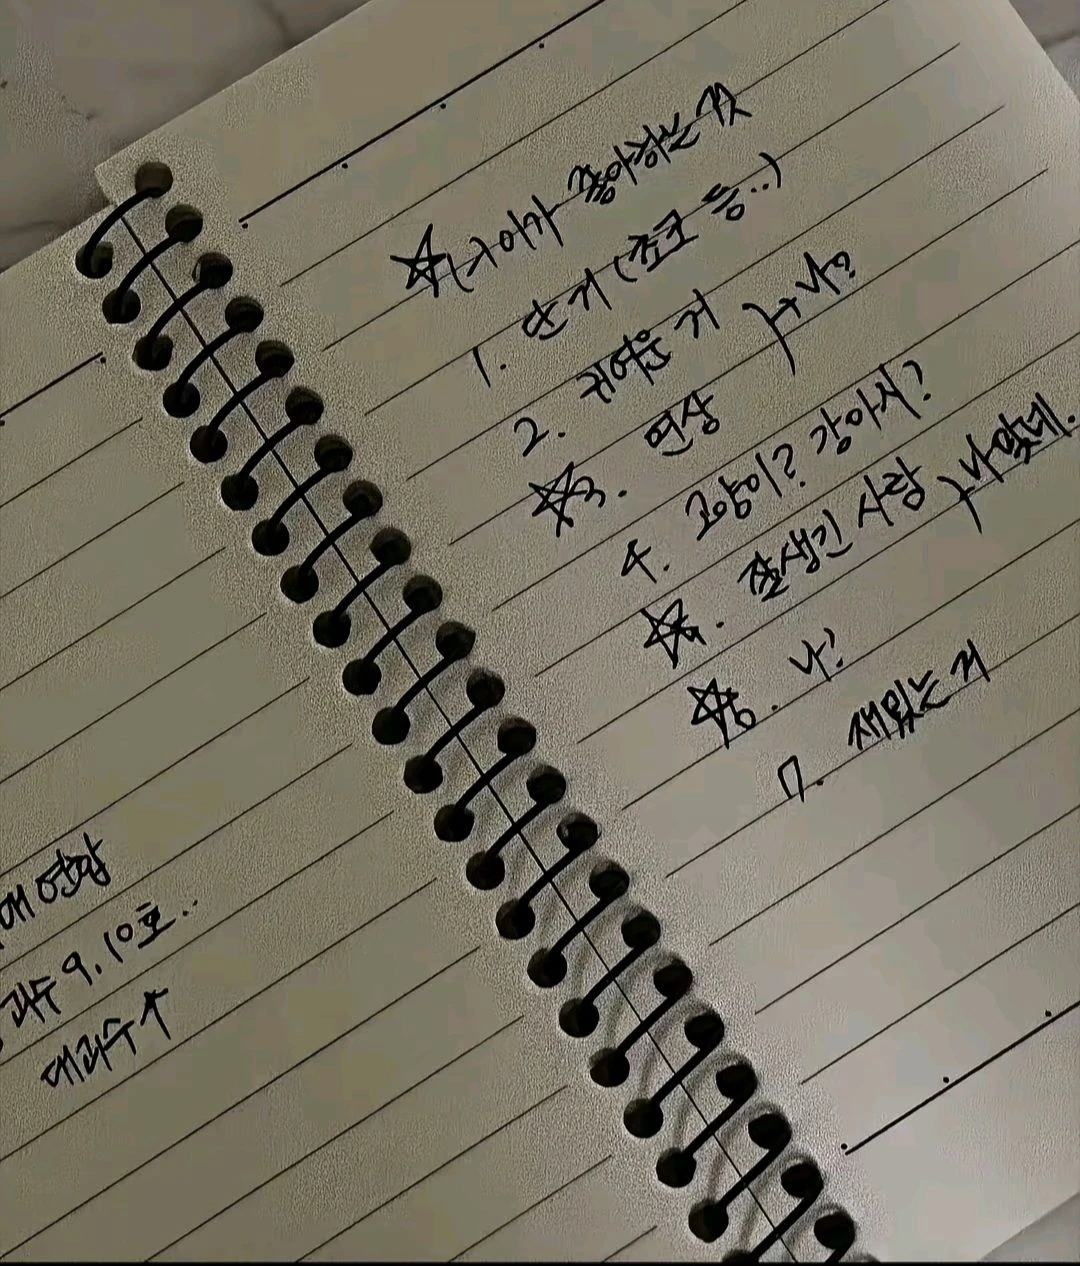 애 연황
과두 9.10호..
대과수↑
☆거아가 좋아하는 것
1. 단 거 (초코 등..)
2. 귀여운 거
☆3. 연상 > 나?
4. 고양이? 강아지?
☆5. 잘생긴 사람 > 나 맞네.
☆6. 나!
7. 재밌는 거